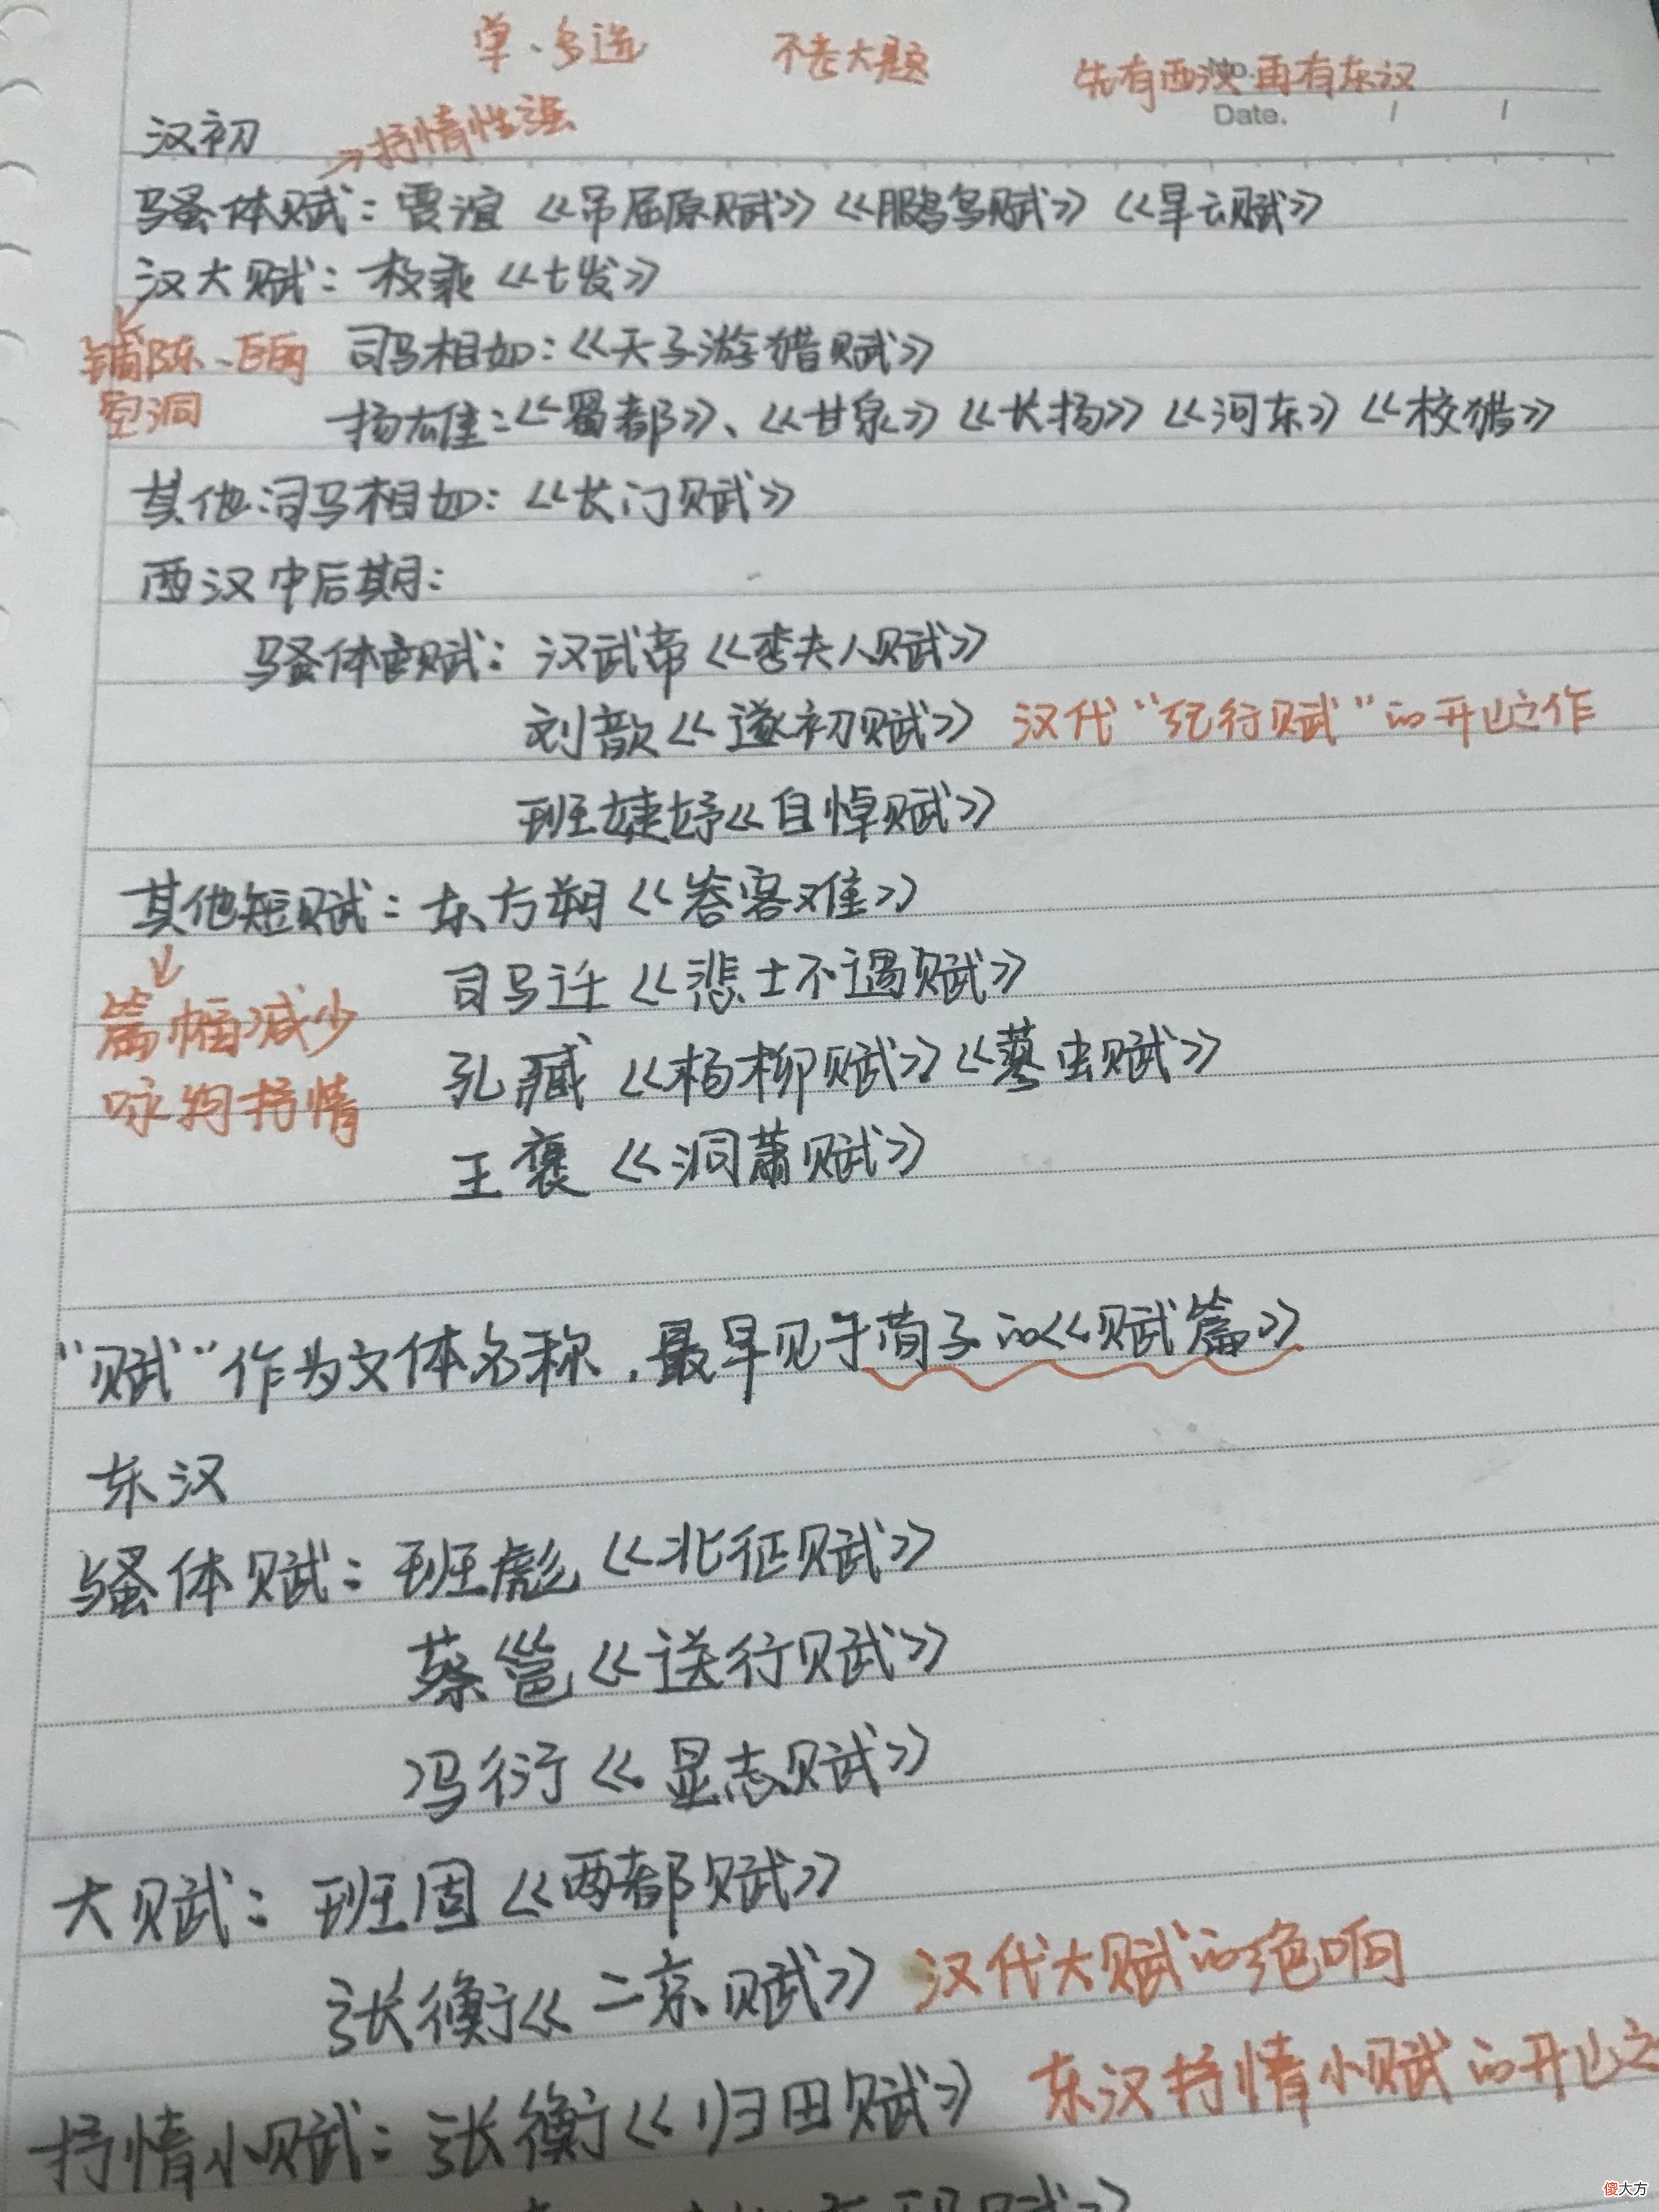 单、多选 不考大题 先有西汉 再有东汉
No.
Date. / /
汉初 →抒情性强
骚体赋：贾谊《吊屈原赋》《鵩鸟赋》《旱云赋》
汉大赋：枚乘《七发》
铺陈、 司马相如：《天子游猎赋》
空洞 扬雄：《蜀都》、《甘泉》《长扬》《河东》《校猎》
其他：司马相如：《长门赋》
西汉中后期：
骚体赋：汉武帝《李夫人赋》
刘歆《遂初赋》 汉代“纪行赋”的开山之作
班婕妤《自悼赋》
其他短赋：东方朔《答客难》
↓
篇幅减少 司马迁《悲士不遇赋》
咏物抒情 孔臧《杨柳赋》《蓼虫赋》
王褒《洞萧赋》
“赋”作为文体名称，最早见于荀子的《赋篇》
东汉
骚体赋：班彪《北征赋》
蔡邕《送行赋》
冯衍《显志赋》
大赋：班固《两都赋》
张衡《二京赋》 汉代大赋的绝响
抒情小赋：张衡《归田赋》 东汉抒情小赋的开山之
傻大方